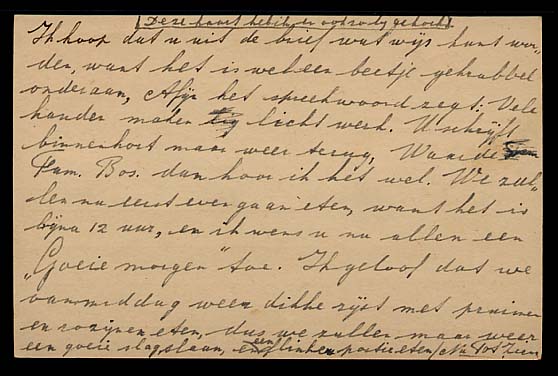 (Deze kaart heb ik er ook nog gekocht)
Ik hoop dat u uit de brief wat wijs kunt wor-
den, want het is wel een beetje gekrabbel
onderaan, Afijn het spreekwoord zegt: Vele
handen maken licht werk. U schrijft
binnenkort maar weer terug, Waarde
Fam. Bos. dan hoor ik het wel. We zul-
len nu eerst even gaan eten, want het is
bijna 12 uur, en ik wens u nu allen een
"Goeie morgen" toe. Ik geloof dat we
vanmiddag weer dikke rijst met pruimen
en rozijnen eten, dus we zullen maar weer
een goeie slag slaan, een flinke portie eten